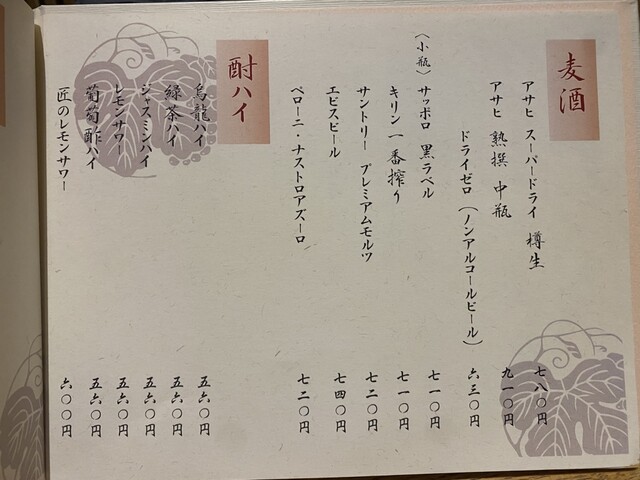 麦酒
アサヒ スーパードライ 樽生 七八〇円
アサヒ 熟撰 中瓶 九一〇円
ドライゼロ（ノンアルコールビール） 六三〇円
（小瓶）サッポロ 黒ラベル 七一〇円
キリン一番搾り 七一〇円
サントリー プレミアムモルツ 七二〇円
エビスビール 七四〇円
ペローニ・ナストロアズーロ 七二〇円
酎ハイ
烏龍ハイ 五六〇円
緑茶ハイ 五六〇円
ジャスミンハイ 五六〇円
レモンサワー 五六〇円
葡萄酢ハイ 五六〇円
匠のレモンサワー 六〇〇円